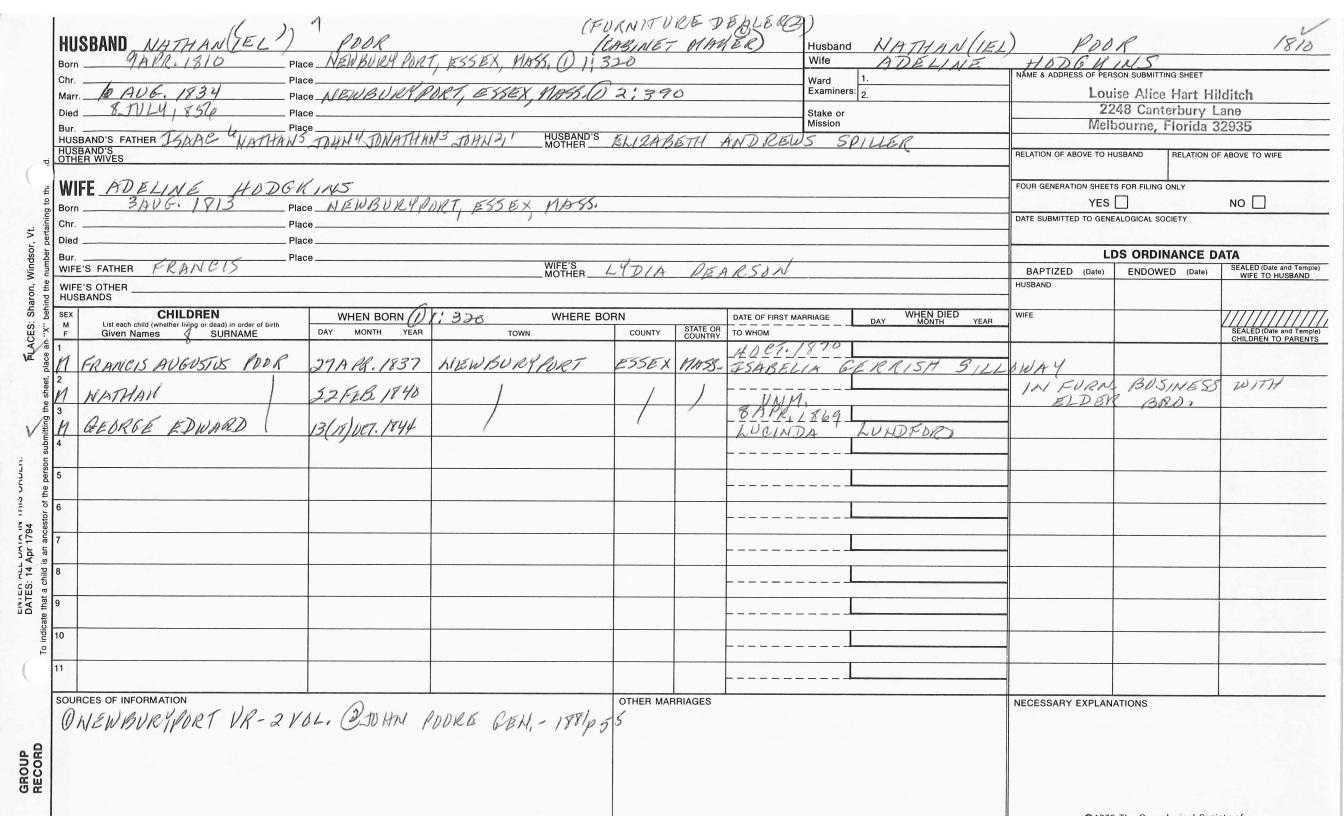 (FURNITURE DEALER (2))
HUSBAND NATHAN(IEL) 7 POOR (CABINET MAKER)
Born 9 APR. 1810 Place NEWBURYPORT, ESSEX, MASS. ① 1:320
Chr. Place
Marr. 6 AUG. 1834 Place NEWBURYPORT, ESSEX, MASS. ① 2:390
Died 8 JULY, 1856 Place
Bur. Place
HUSBAND'S FATHER ISAAC 6 NATHAN5 JOHN4 JONATHAN3 JOHN2,1 HUSBAND'S MOTHER ELIZABETH ANDREWS SPILLER
HUSBAND'S OTHER WIVES
Husband NATHAN(IEL) POOR 1810
Wife ADELINE HODGKINS
Ward Examiners: 1.
2.
Stake or Mission
NAME & ADDRESS OF PERSON SUBMITTING SHEET
Louise Alice Hart Hilditch
2248 Canterbury Lane
Melbourne, Florida 32935
RELATION OF ABOVE TO HUSBAND RELATION OF ABOVE TO WIFE
FOUR GENERATION SHEETS FOR FILING ONLY
YES NO
DATE SUBMITTED TO GENEALOGICAL SOCIETY
WIFE ADELINE HODGKINS
Born 3 AUG. 1813 Place NEWBURYPORT, ESSEX, MASS.
Chr. Place
Died Place
Bur. Place
WIFE'S FATHER FRANCIS WIFE'S MOTHER LYDIA PEARSON
WIFE'S OTHER HUSBANDS
LDS ORDINANCE DATA
BAPTIZED (Date) ENDOWED (Date) SEALED (Date and Temple) WIFE TO HUSBAND
HUSBAND
WIFE
SEALED (Date and Temple) CHILDREN TO PARENTS
SEX M F
CHILDREN
List each child (whether living or dead) in order of birth
Given Names 8 SURNAME
WHEN BORN ① 1:320 WHERE BORN
DAY MONTH YEAR TOWN COUNTY STATE OR COUNTRY
DATE OF FIRST MARRIAGE
TO WHOM
WHEN DIED
DAY MONTH YEAR
1 4 OCT. 1870
M FRANCIS AUGUSTUS POOR 27 APR. 1837 NEWBURYPORT ESSEX MASS. ISABELIA GERRISH SILLOWAY
2
M NATHAN 22 FEB. 1840 UNM. IN FURN. BUSINESS WITH
ELDER BRO.
3 8 APR. 1869
M GEORGE EDWARD 13(11) OCT. 1844 LUCINDA LUNDFORD
4
5
6
7
8
9
10
11
SOURCES OF INFORMATION
① NEWBURYPORT VR-2 VOL. ② JOHN POORE GEN.- 1881 p 55
OTHER MARRIAGES
NECESSARY EXPLANATIONS
PLACES: Sharon, Windsor, Vt.
DATES: 14 Apr 1794
To indicate that a child is an ancestor of the person submitting the sheet, place an "X" behind the number pertaining to
GROUP
RECORD